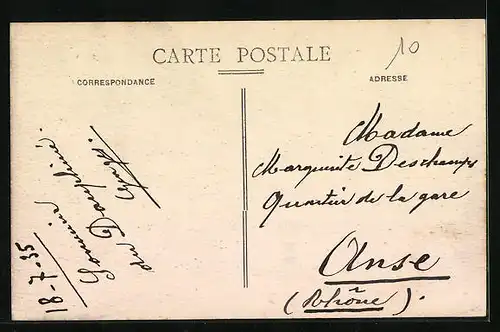 10
CARTE POSTALE
CORRESPONDANCE
ADRESSE
Souvenir
du Dauphiné.
18-7-35
Madame
Marguerite Deschamps
Quartier de la gare
Anse
(Rhône).